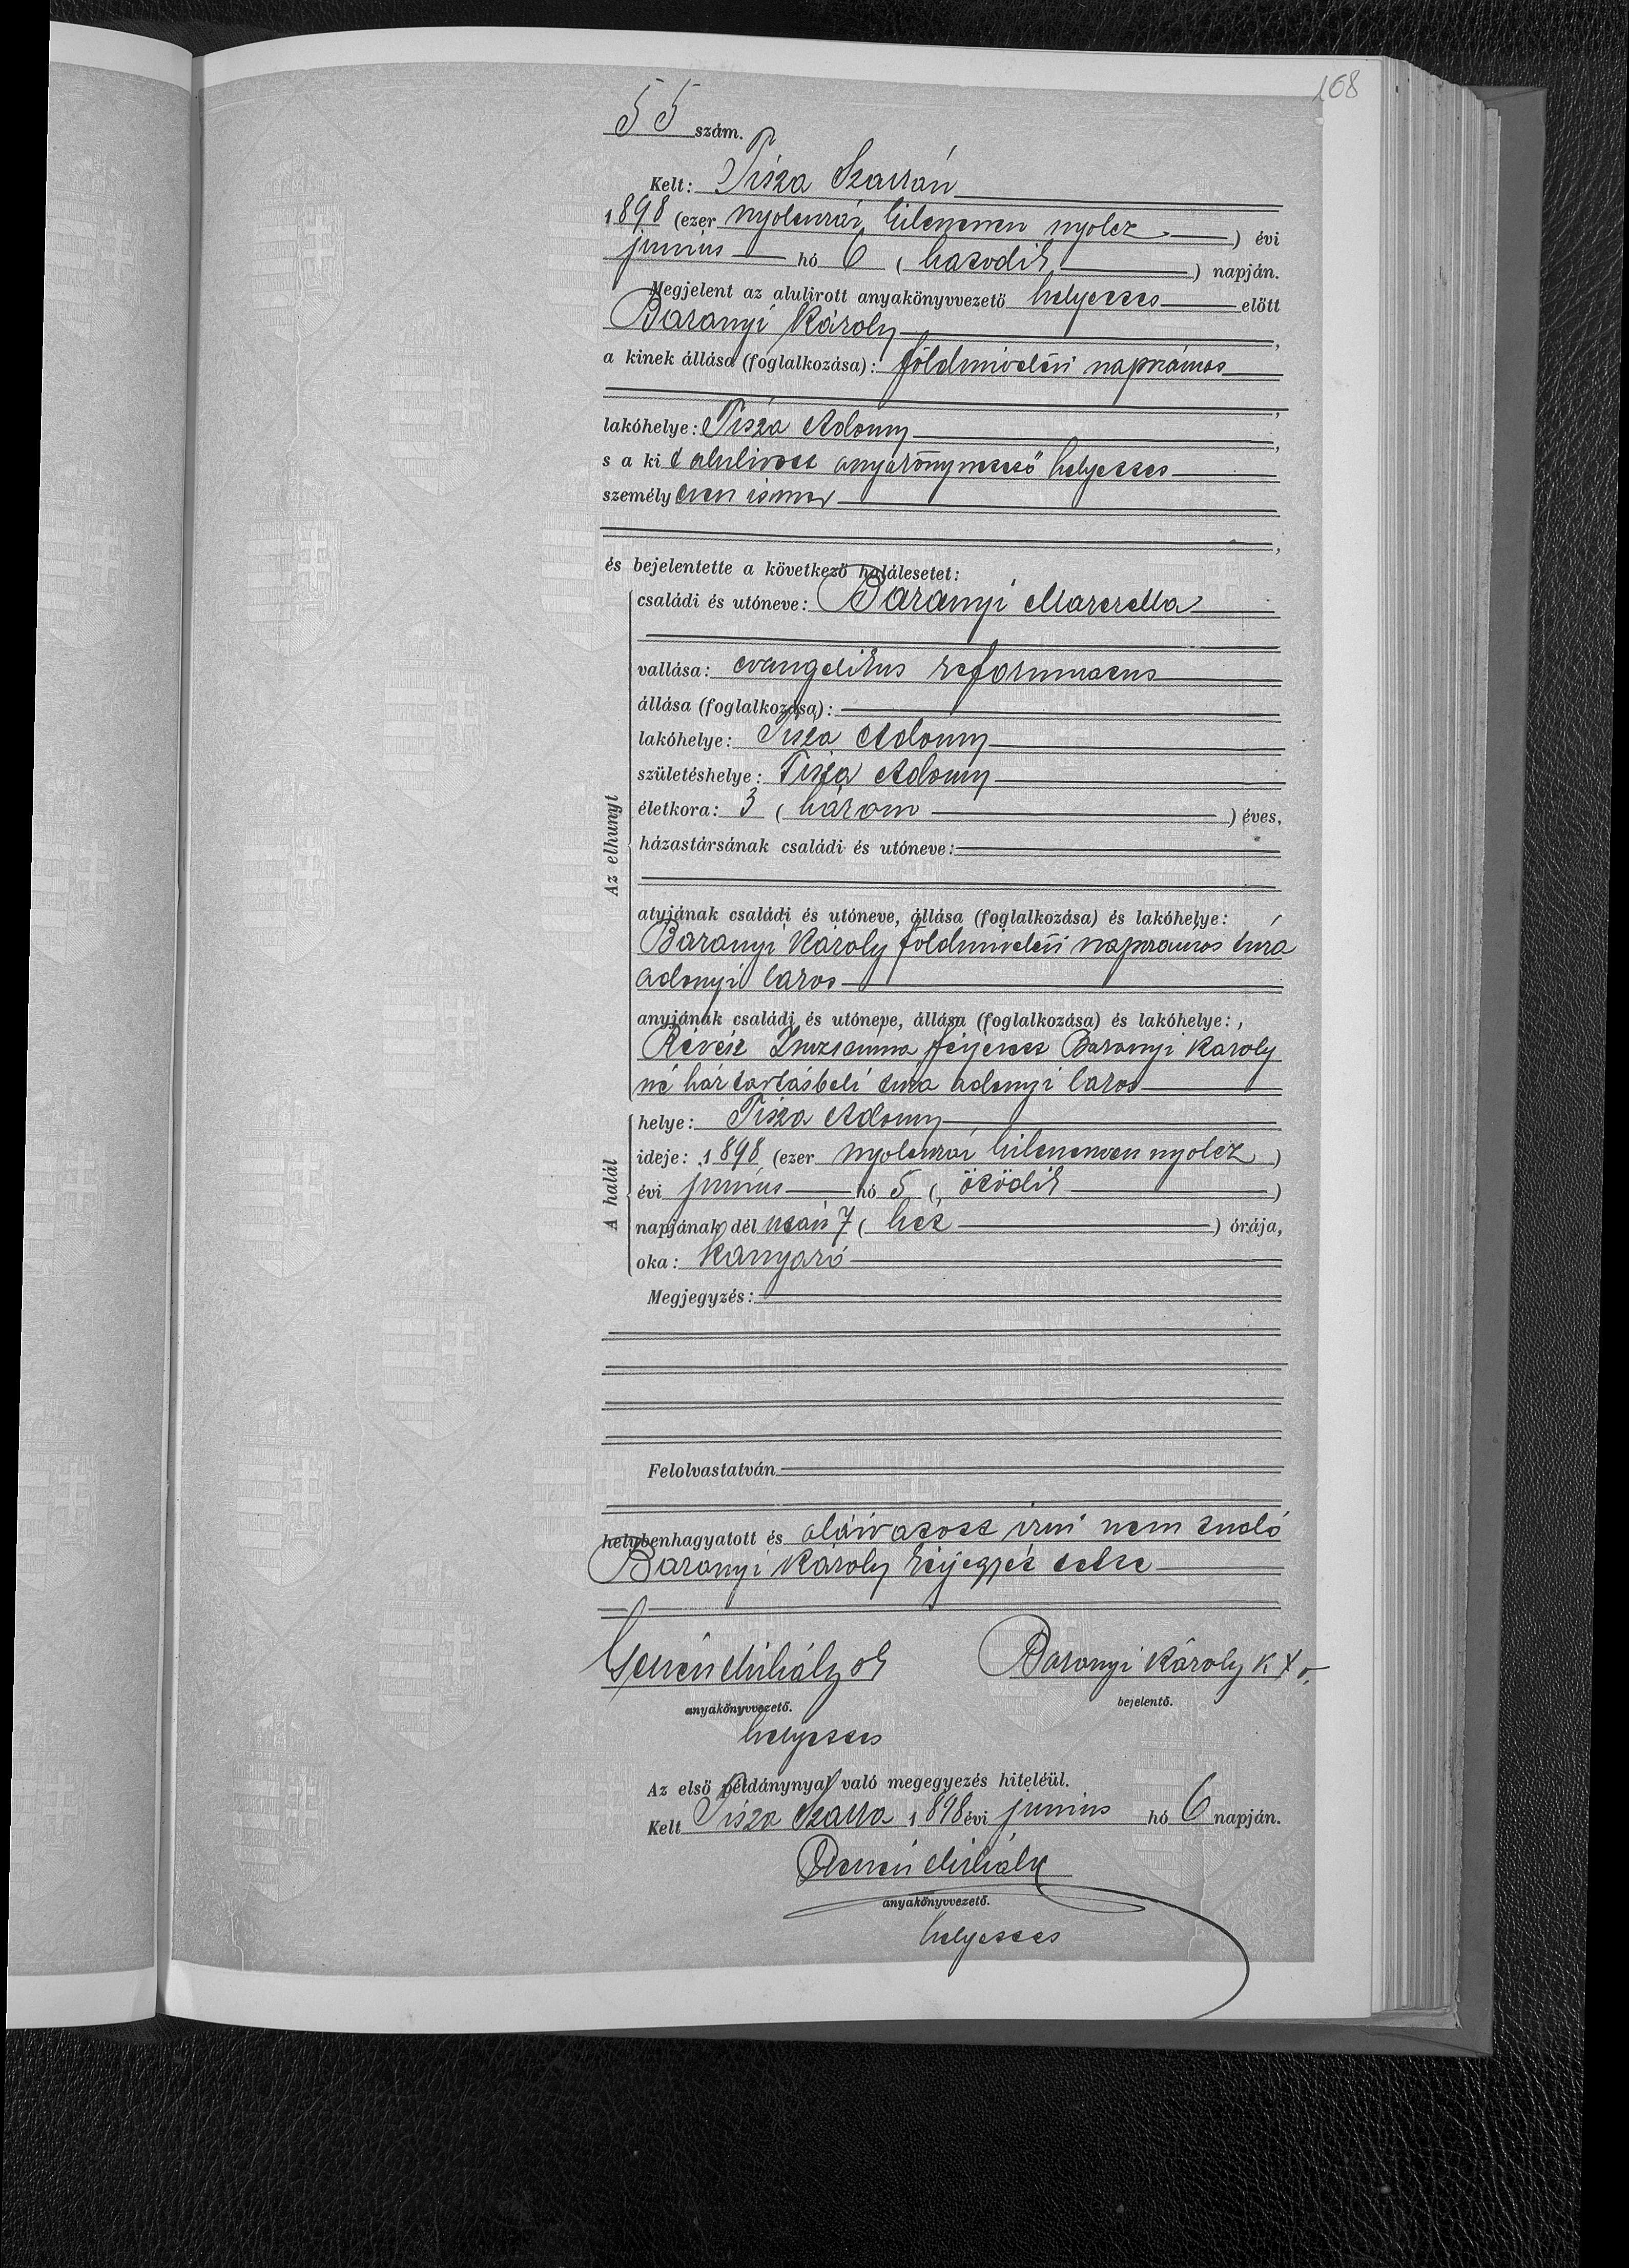 168
55 szám.
Kelt: Tisza Szalkán
1898 (ezer nyolczszáz kilenczven nyolcz) évi
junius hó 6 (hatodik) napján.
Megjelent az alulirott anyakönyvvezető helyettes előtt
Baranyi Károly,
a kinek állása (foglalkozása): földmivelési napszámos
,
lakóhelye: Tisza Adony,
s a kit alulirott anyakönyvvezető helyettes
személyesen ismer
,
és bejelentette a következő halálesetet:
Az elhunyt
családi és utóneve: Baranyi
vallása: evangelikus reformatus
állása (foglalkozása):
lakóhelye: Tisza Adony
születéshelye: Tisza Adony
életkora: 3 (három) éves,
házastársának családi és utóneve:
atyjának családi és utóneve, állása (foglalkozása) és lakóhelye:
Baranyi Károly földmivelési napszámos tisza
adonyi lakos
anyjának családi és utóneve, állása (foglalkozása) és lakóhelye:,
Révész Zsuzsanna férjezett Baranyi Karoly
né háztartásbeli tisza adonyi lakos
A halál
helye: Tisza Adony
ideje: 1898 (ezer nyolczszáz kilenczven nyolcz)
évi junius hó 5 (ötödik)
napjának dél után 7 (hét) órája,
oka: Kanyaró
Megjegyzés:
Felolvastatván
helybenhagyatott és aláiratott irni nem tudó
Baranyi Károly kézjegyét tette
Mihály sk Baranyi Károly k X v.
anyakönyvvezető. bejelentő.
helyettes
Az első példánynyal való megegyezés hiteléül.
Kelt Tisza Szalka 1898 évi junius hó 6 napján.
Mihály
anyakönyvvezető.
helyettes